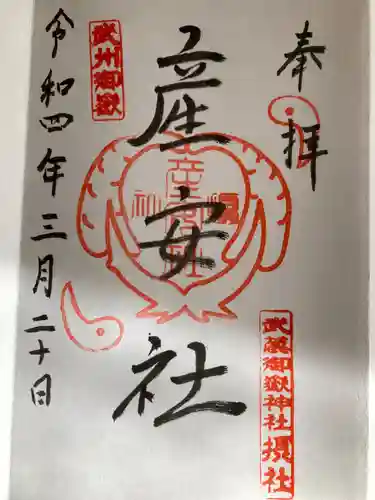 奉拝
産安社
武州御嶽
令和四年三月二十日
武蔵御嶽神社摂社